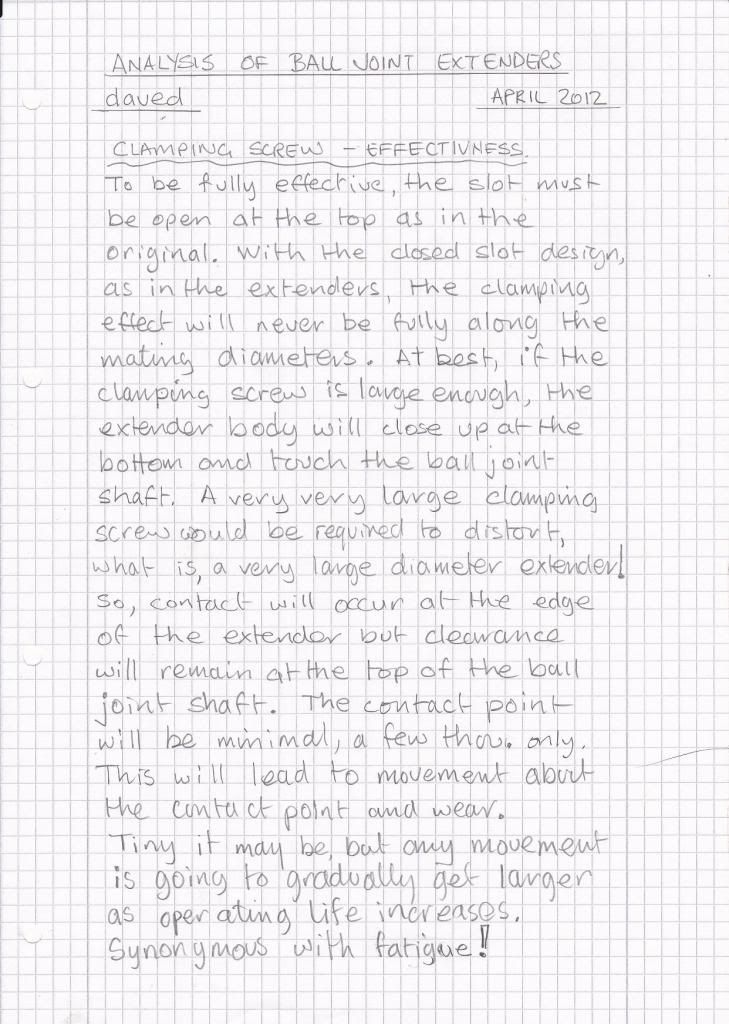 ANALYSIS OF BALL JOINT EXTENDERS
daved APRIL 2012
CLAMPING SCREW - EFFECTIVNESS.
To be fully effective, the slot must
be open at the top as in the
original. With the closed slot design,
as in the extenders, the clamping
effect will never be fully along the
mating diameters. At best, if the
clamping screw is large enough, the
extender body will close up at the
bottom and touch the ball joint
shaft. A very very large clamping
screw would be required to distort,
what is, a very large diameter extender!
So, contact will occur at the edge
of the extender but clearance
will remain at the top of the ball
joint shaft. The contact point
will be minimal, a few thou. only.
This will lead to movement about
the contact point and wear.
Tiny it may be, but any movement
is going to gradually get larger
as operating life increases.
Synonymous with fatigue!